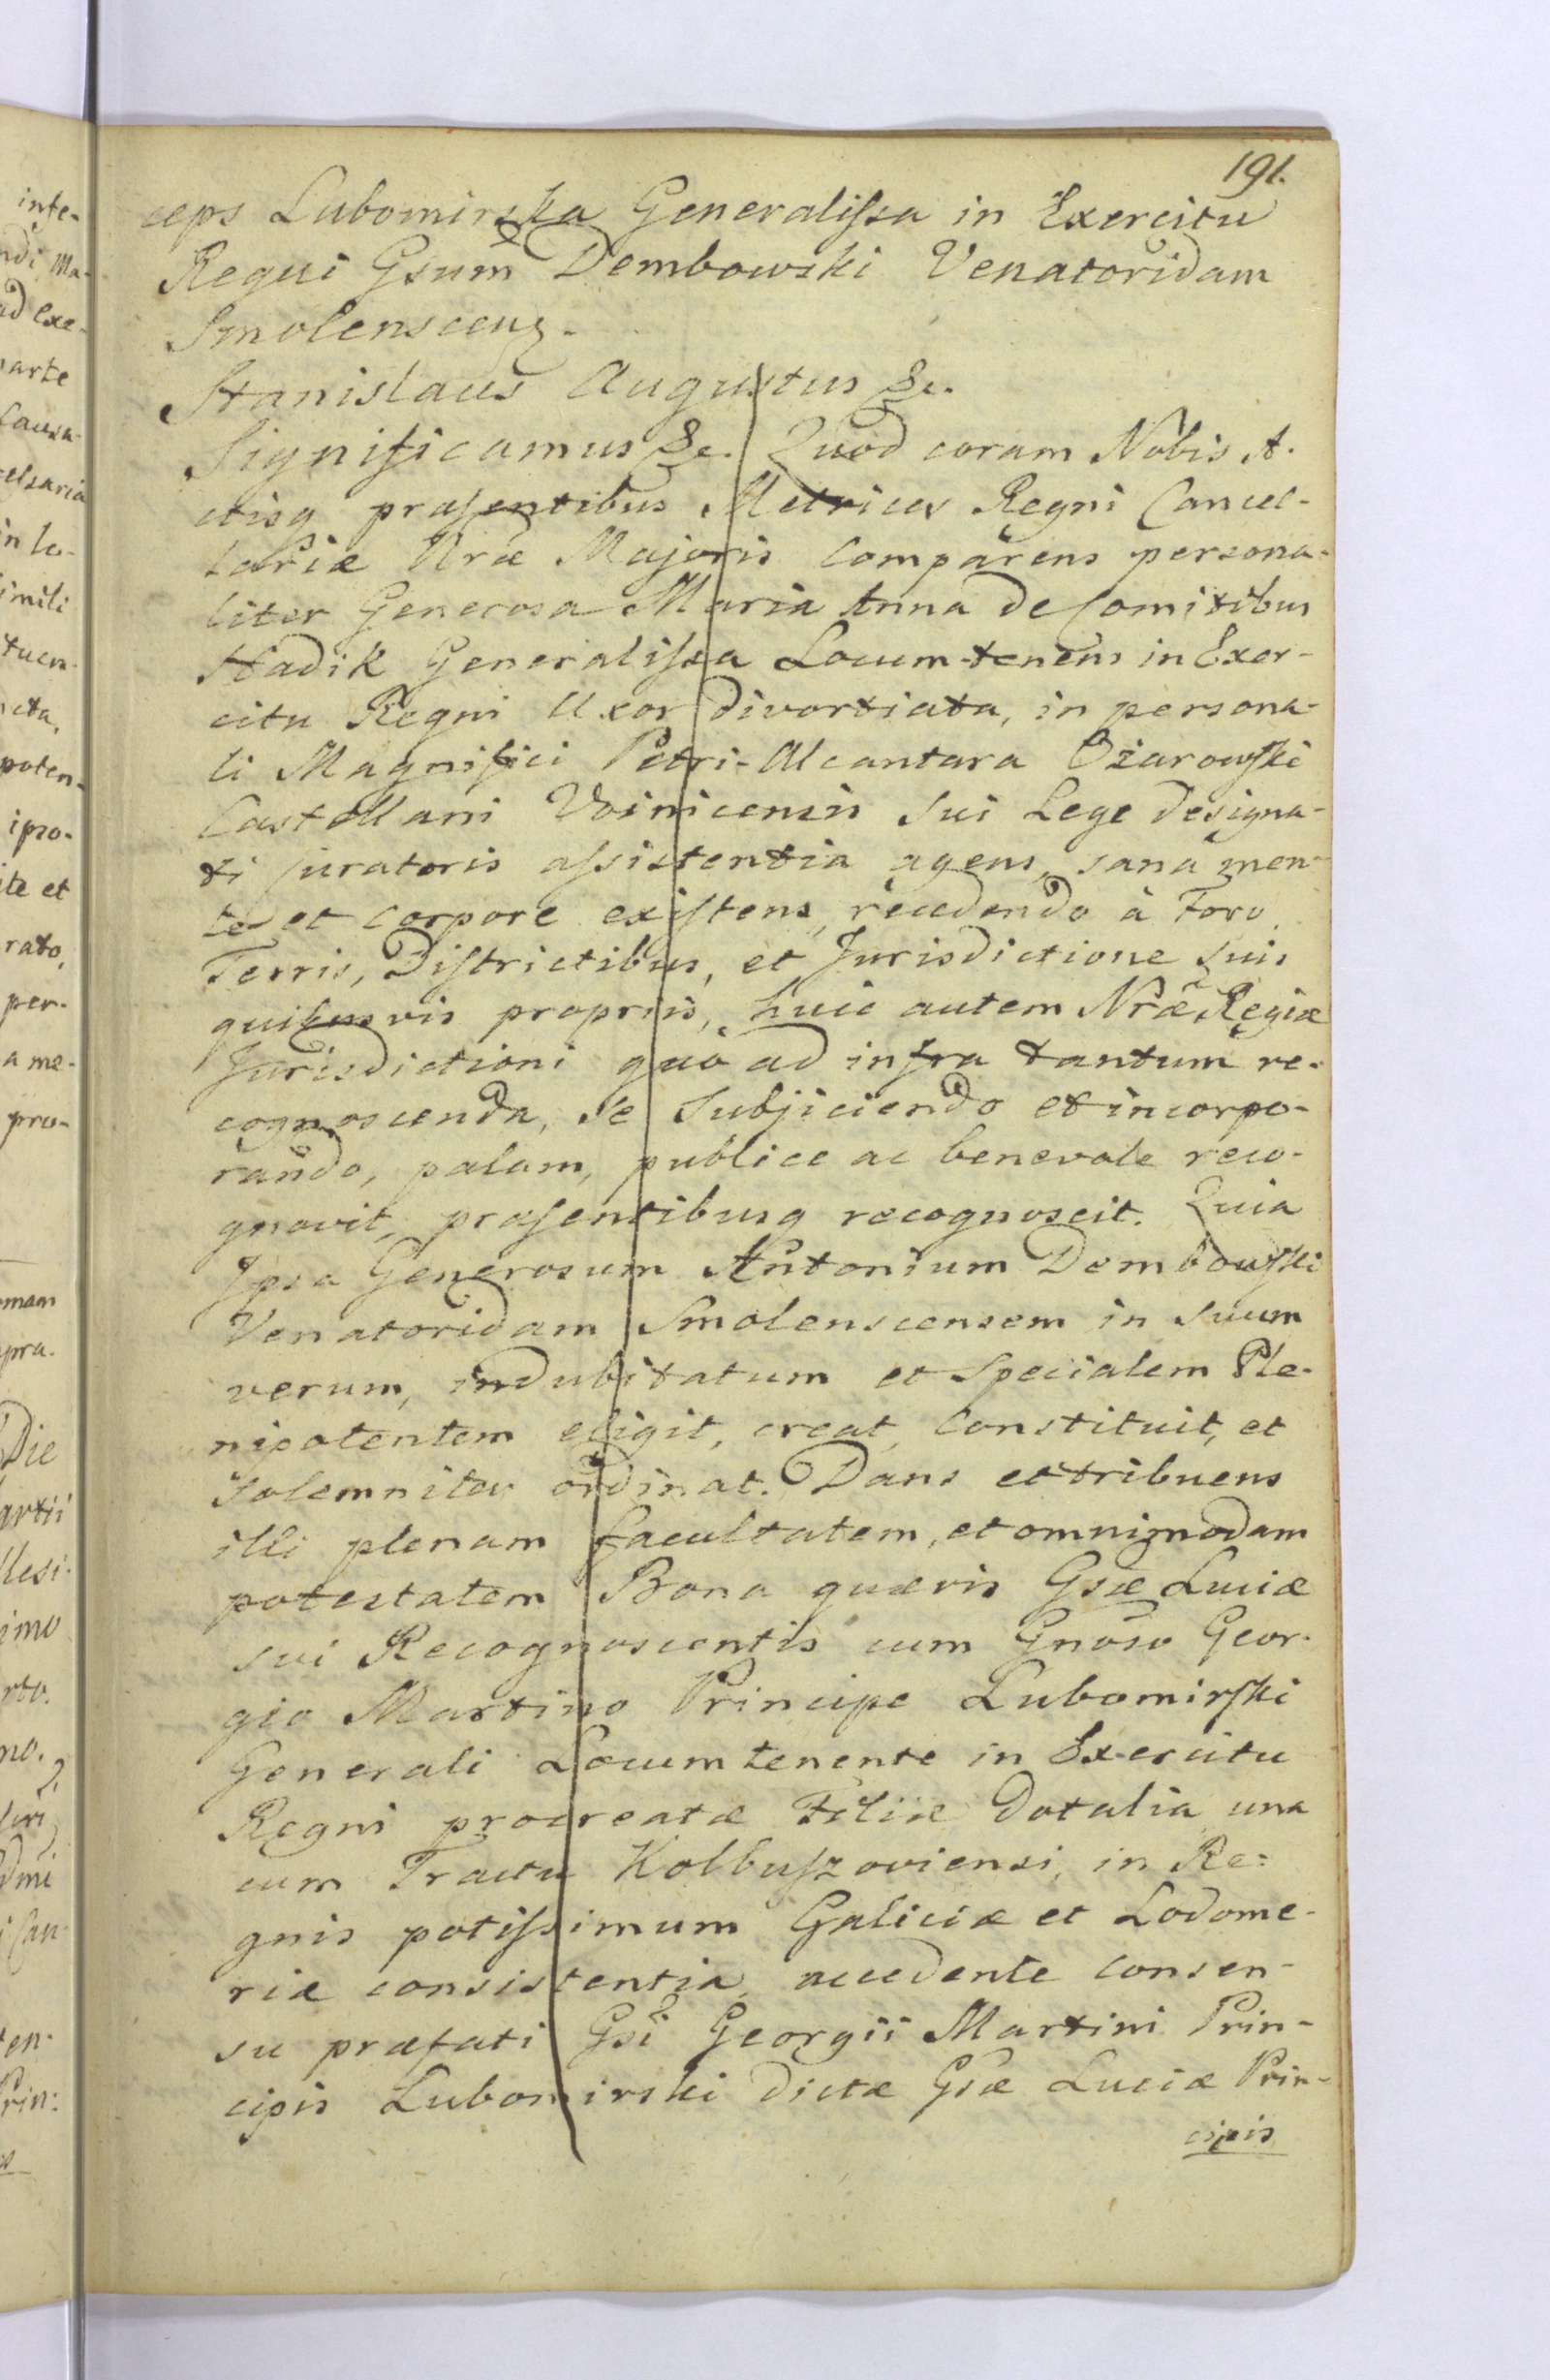 191.
ceps Lubomirska Generalissa in Exercitu
Regni Gsum Dembowski Venatoridam
Smolenscens.
Stanislaus Augustus &c.
Significamus &c. Quod coram Nobis A-
ctisq præsentibus Metrices Regni Cancel-
lariæ Nræ Majoris Comparens persona-
liter Generosa Maria Anna de Comitibus
Hadik Generalissa Locum-tenens in Exer-
citu Regni Uxor divortiata, in persona-
li Magnifici Petri-Alcantara Ożarowski
Castellani Voinicensis sui Lege designa-
ti Curatoris assistentia agens, sana men-
te et Corpore existens, recedendo à Foro
Terris, Districtibus, et Jurisdictione suis
quibusvis propriis, huic autem Nræ Regiæ
Jurisdictioni quò ad infra tantum re-
cognoscenda, se Subjiciendo et incorpo-
rando, palam, publice ac benevole reco-
gnovit, præsentibusq recognoscit. Quia
Ipsa Generosum Antonium Dembowski
Venatoridam Smolenscensem in suum
verum, indubitatum et Specialem Ple-
nipotentem eligit, creat, Constituit, et
Solemniter ordinat. Dans et tribuens
illi plenam facultatem, et omnimodam
potestatem Bona quævis Gsæ Luciæ
sui Recognoscentis cum Gnoso Geor-
gio Martino Principe Lubomirski
Generali Locum tenente in Exercitu
Regni procreatæ Filiæ dotalia una
cum Tractu Kolbuszoviensi, in Re-
gnis potissimum Galiciæ et Lodome-
riæ consistentia, accedente Consen-
su præfati Gsi Georgii Martini Prin-
cipis Lubomirski dictæ Gsæ Luciæ Prin-
cipis
inte-
ndi Ma-
ad exe-
parte
Causa
in lo-
simili
poten-
ipso-
ite et
rato,
per-
a me-
Die
artii